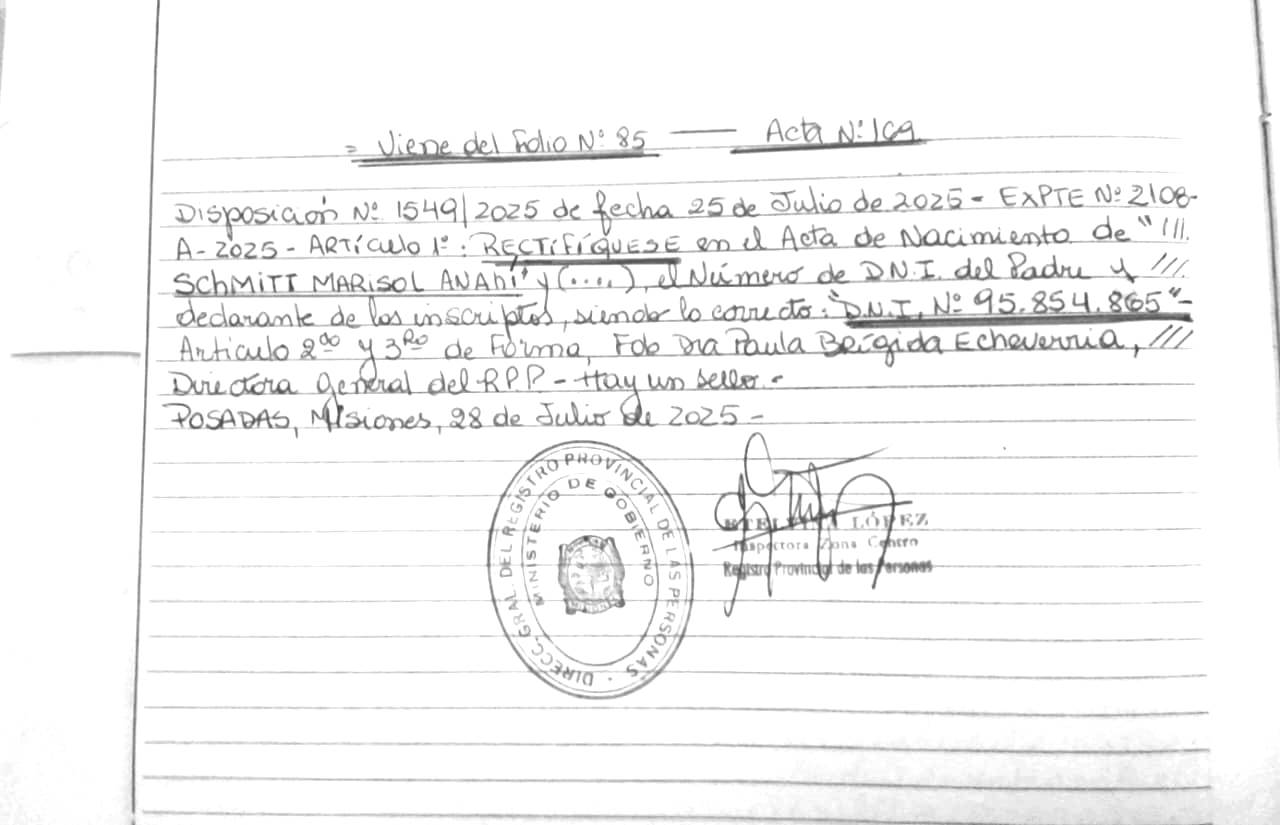 = Viene del Folio Nº 85 —— Acta Nº 169
Disposición Nº 1549/2025 de fecha 25 de Julio de 2025 - EXPTE Nº 2108-
A-2025 - ARTÍCULO 1º: RECTIFÍQUESE en el Acta de Nacimiento de "///.
SCHMITT MARISOL ANAHÍ" y (....), el Número de D.N.I. del Padre y ///
declarante de los inscriptos, siendo lo correcto: "D.N.I. Nº 95.854.865"-
Articulo 2do y 3Ro de Forma, Fdo Dra Paula Brígida Echeverria, ///
Directora General del R.P.P - Hay un sello.-
POSADAS, Misiones, 28 de Julio de 2025 -
DIRECC. GRAL. DEL REGISTRO PROVINCIAL DE LAS PERSONAS
MINISTERIO DE GOBIERNO
LÓPEZ
Inspectora Zona Centro
Registro Provincial de las Personas